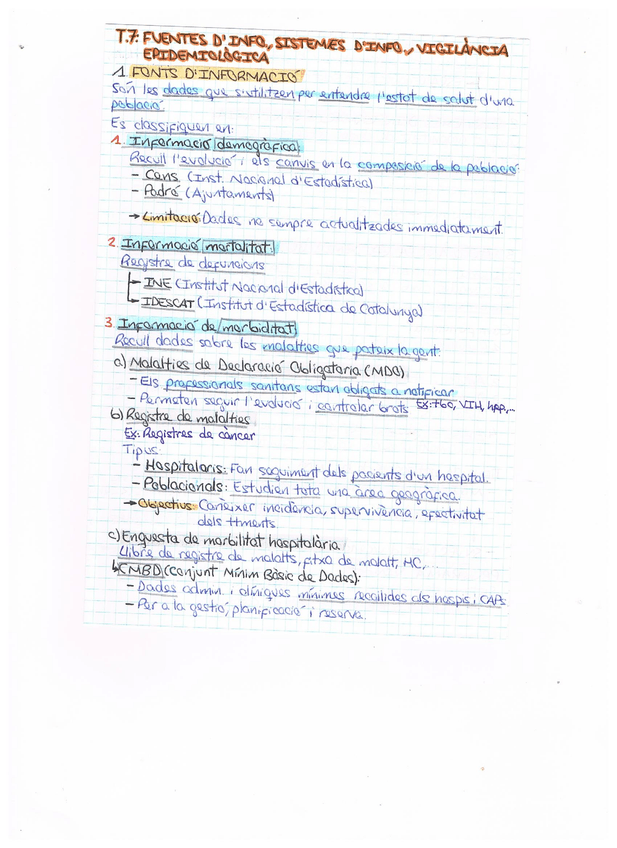 T.7: FUENTES D'INFO., SISTEMES D'INFO., VIGILÀNCIA
EPIDEMIOLÒGICA
1. FONTS D'INFORMACIÓ
Són les dades que s'utilitzen per entendre l'estat de salut d'una
població
Es classifiquen en:
1. Informació demogràfica:
Recull l'evolució i els canvis en la composició de la població:
- Cens (Inst. Nacional d'Estadística)
- Padró (Ajuntaments)
→ Limitació: Dades no sempre actualitzades immediatament.
2. Informació mortalitat:
Registre de defuncions
INE (Institut Nacional d'Estadística)
IDESCAT (Institut d'Estadística de Catalunya)
3. Informació de morbiditat
Recull dades sobre les malalties que pateix la gent:
a) Malalties de Declaració Obligatoria (MDO)
- Els professionals sanitaris estan obligats a notificar
- Permeten seguir l'evolució i controlar brots Ex: tbc, VIH, hep,...
b) Registre de malalties
Ex: Registres de càncer
Tipus:
- Hospitalaris: Fan seguiment dels pacients d'un hospital.
- Poblacionals: Estudien tota una àrea geogràfica.
→ Objectius: Conèixer incidència, supervivència, efectivitat
dels ttments.
c) Enquesta de morbilitat hospitalària.
Llibre de registre de malalts, fitxa de malalt, HC,...
↳ CMBD (Conjunt Mínim Bàsic de Dades):
- Dades admin. i clíniques mínimes recollides als hosps i CAPs
- Per a la gestió, planificació i